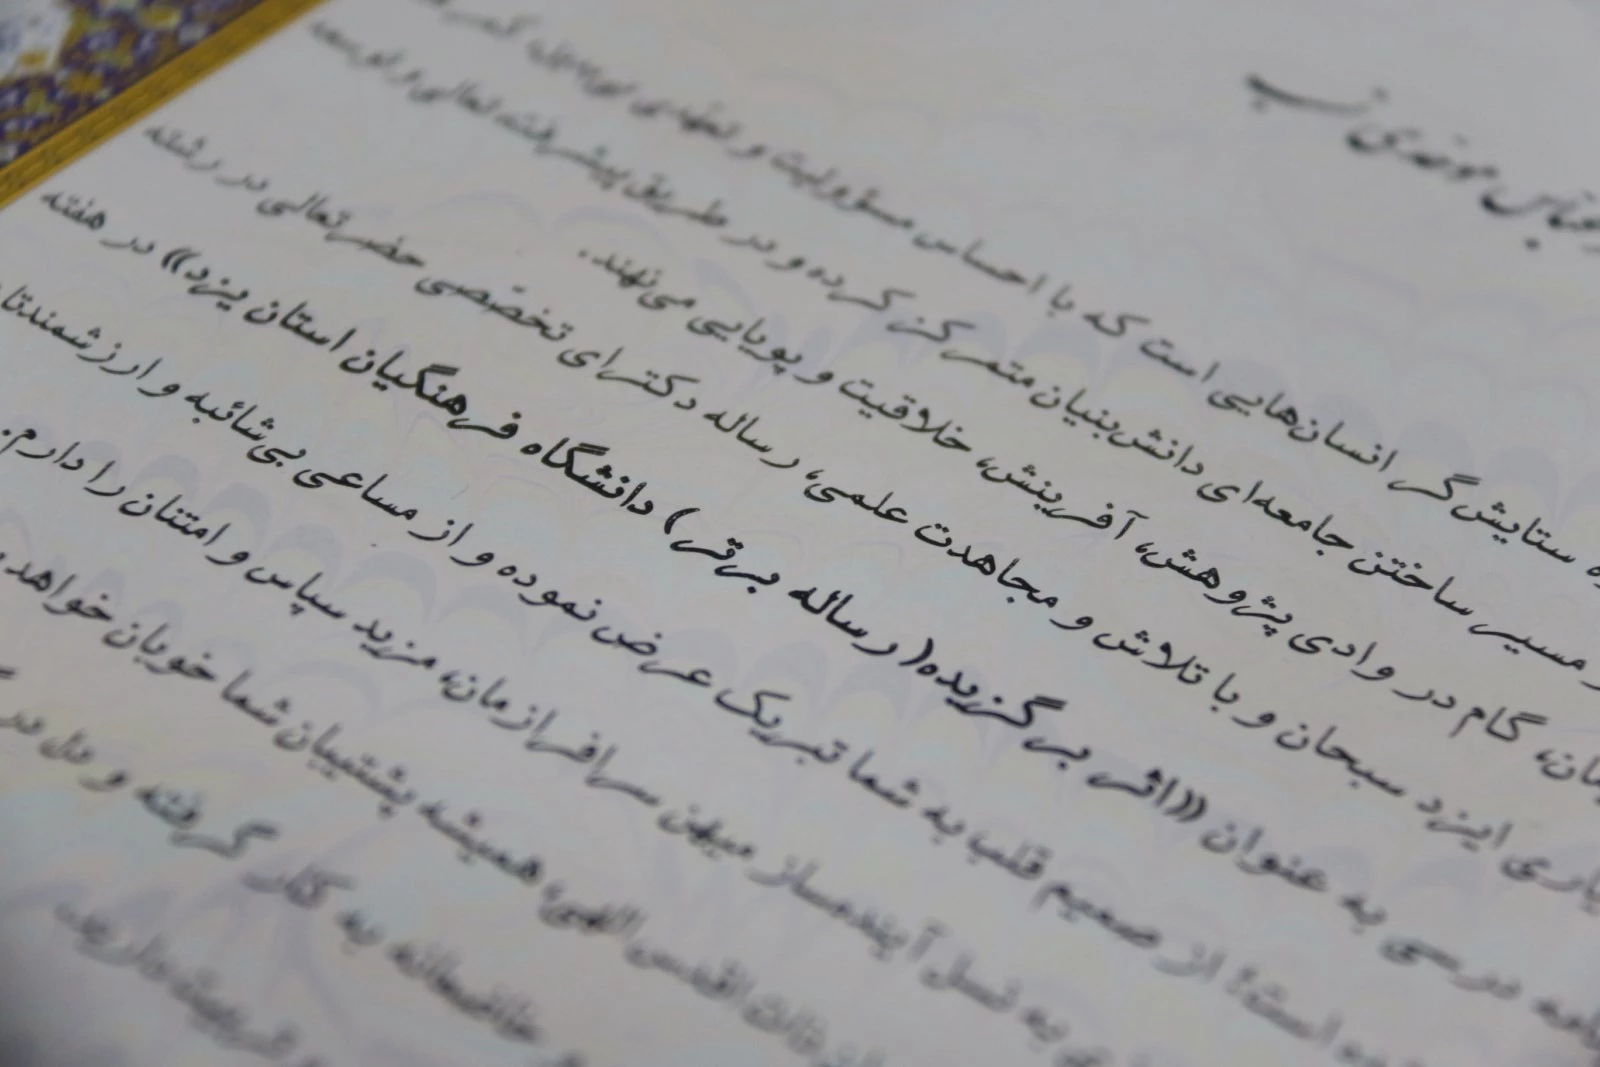 عباس موحدی نسب
ستایش‌گر انسان‌هایی است که با احساس مسؤولیت و تعهدی بی‌بدیل، کمر
مسیر ساختن جامعه‌ای دانش‌بنیان متمرکز کرده و در طریق پیشرفت، تعالی و توسعه
گام در وادی پژوهش، آفرینش، خلاقیت و پویایی می‌نهند.
یاری ایزد سبحان و با تلاش و مجاهدت علمی، رساله دکترای تخصّصی حضرتعالی در رشته
درسی به عنوان ((اثر برگزیده( رساله برتر) دانشگاه فرهنگیان استان یزد)) در هفته
است؛ از صمیم قلب به شما تبریک عرض نموده و از مساعی بی‌شائبه و ارزشمندتان
به نسل آینده‌ساز میهن سرافرازمان، مزید سپاس و امتنان را دارم.
ذات اقدس الهی، همیشه پشتیبان شما خوبان خواهد
به کار گرفته و دل در